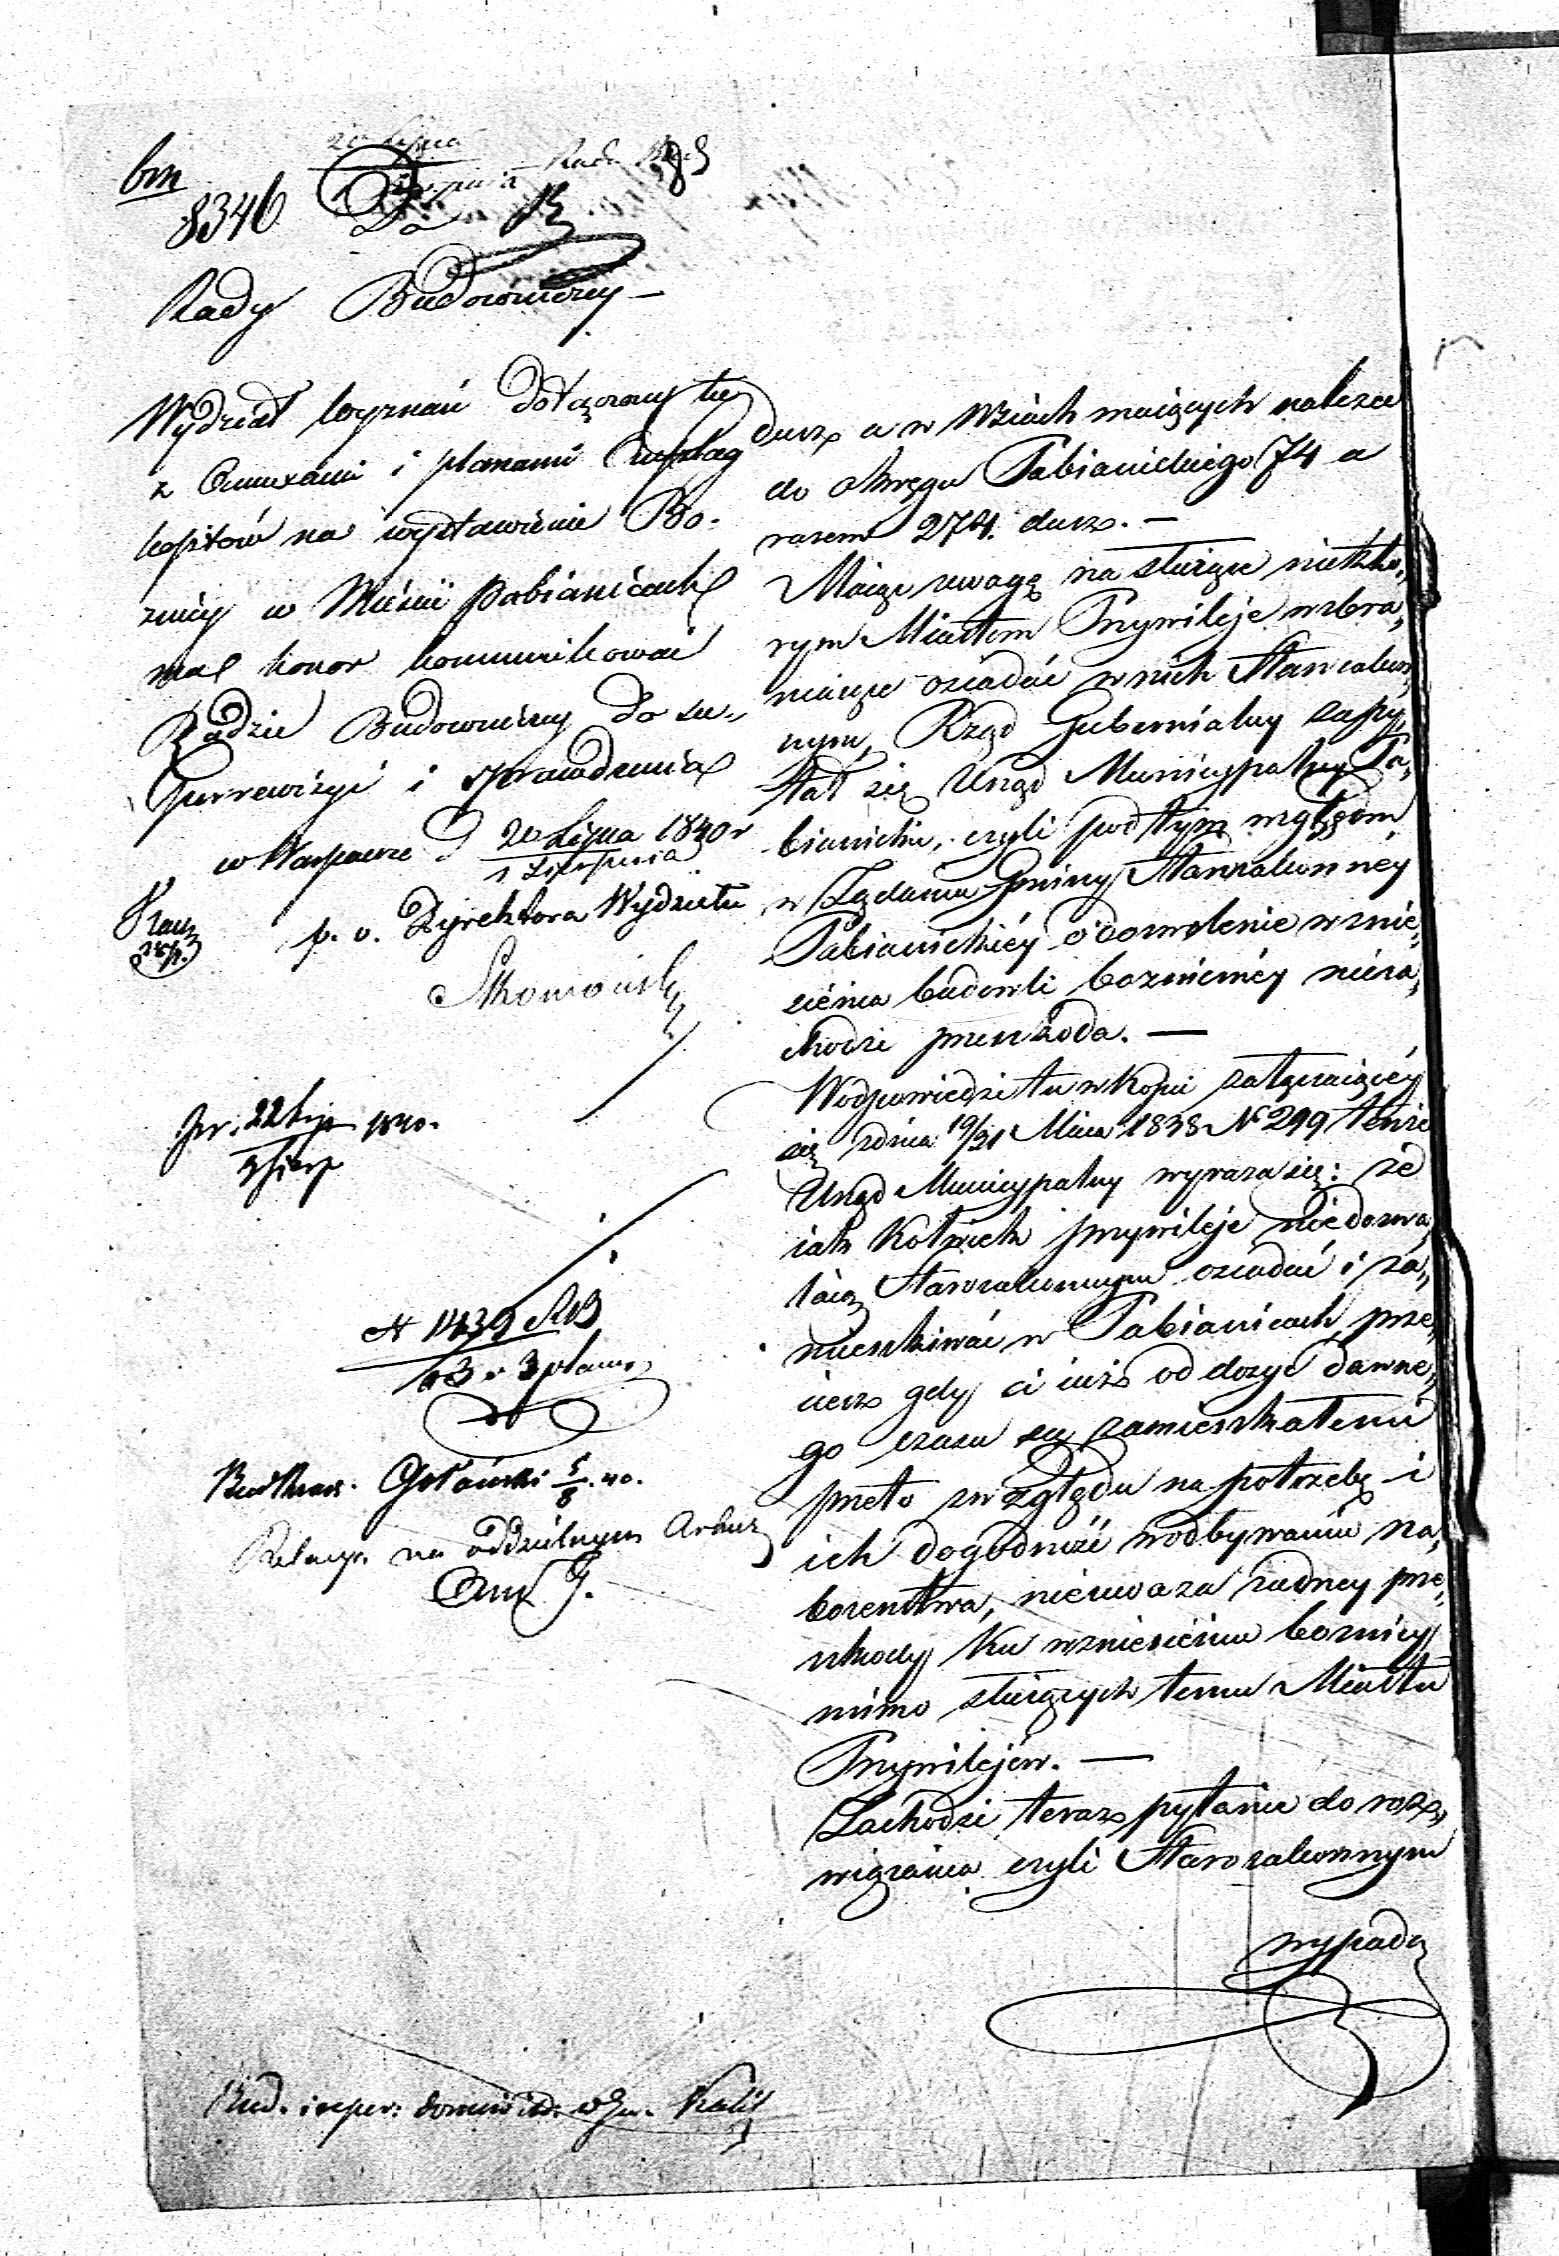 bm
8346
20 Lipca
Do
Rady Budowniczej –
Wydział Wyznań dołączony tu
z Anexami i planami
na wystawienie Bo-
znicy w Mieście Pabianicach
ma honor kommunikować
Radzie Budowniczej do su-
perrewizyi i sprawdzenia
w Warszawie d 20 Lipca 1840 r
1 Sierpnia
p. o. Dyrektora Wydziału
Pr. 22 Lip 1840.
3 Sierp
N 1439 RB
3 planu
Gołański 5/8 40.
Relacya na oddzielnym Arkuszu
G.
dusz a w Wsiach maiących należeć
do okręgu Pabianickiego 74 a
razem 274. dusz. –
Maiąc uwagę na służące niektó-
rym Miastom Przywileje wzbra-
niaiące osiadać w nich Starozakon-
nym, Rząd Gubernialny zapy-
tał się Urząd Municypalny Pa-
bianicki, czyli pod tym względem
w żądaniu Gminy Starozakonnéy
Pabianickiéy o dozwolenie wznie-
sienia budowli bożniczéy nieza-
chodzi przeszkoda. —
W odpowiedzi tu w kopii załączaiącéy
się z dnia 19/31 Maia 1838 N 299 tenże
Urząd Municypalny wyraża się: że
iak kolwiek przywileje niedozwa-
laią Starozakonnym osiadać i za-
mieszkiwać w Pabianicach, prze-
cież gdy ci iuż od dosyć dawne-
go czasu są zamieszkałemi
przeto ze względu na potrzebę i
ich dogodność w odbywaniu na-
bożeństwa, nieuważa żadney prze-
szkody ku wzniesieniu bożnicy
mimo służących temu Miastu
Przywilejów. —
Zachodzi teraz pytanie do roz-
wiązania czyli Starozakonnym
wypada